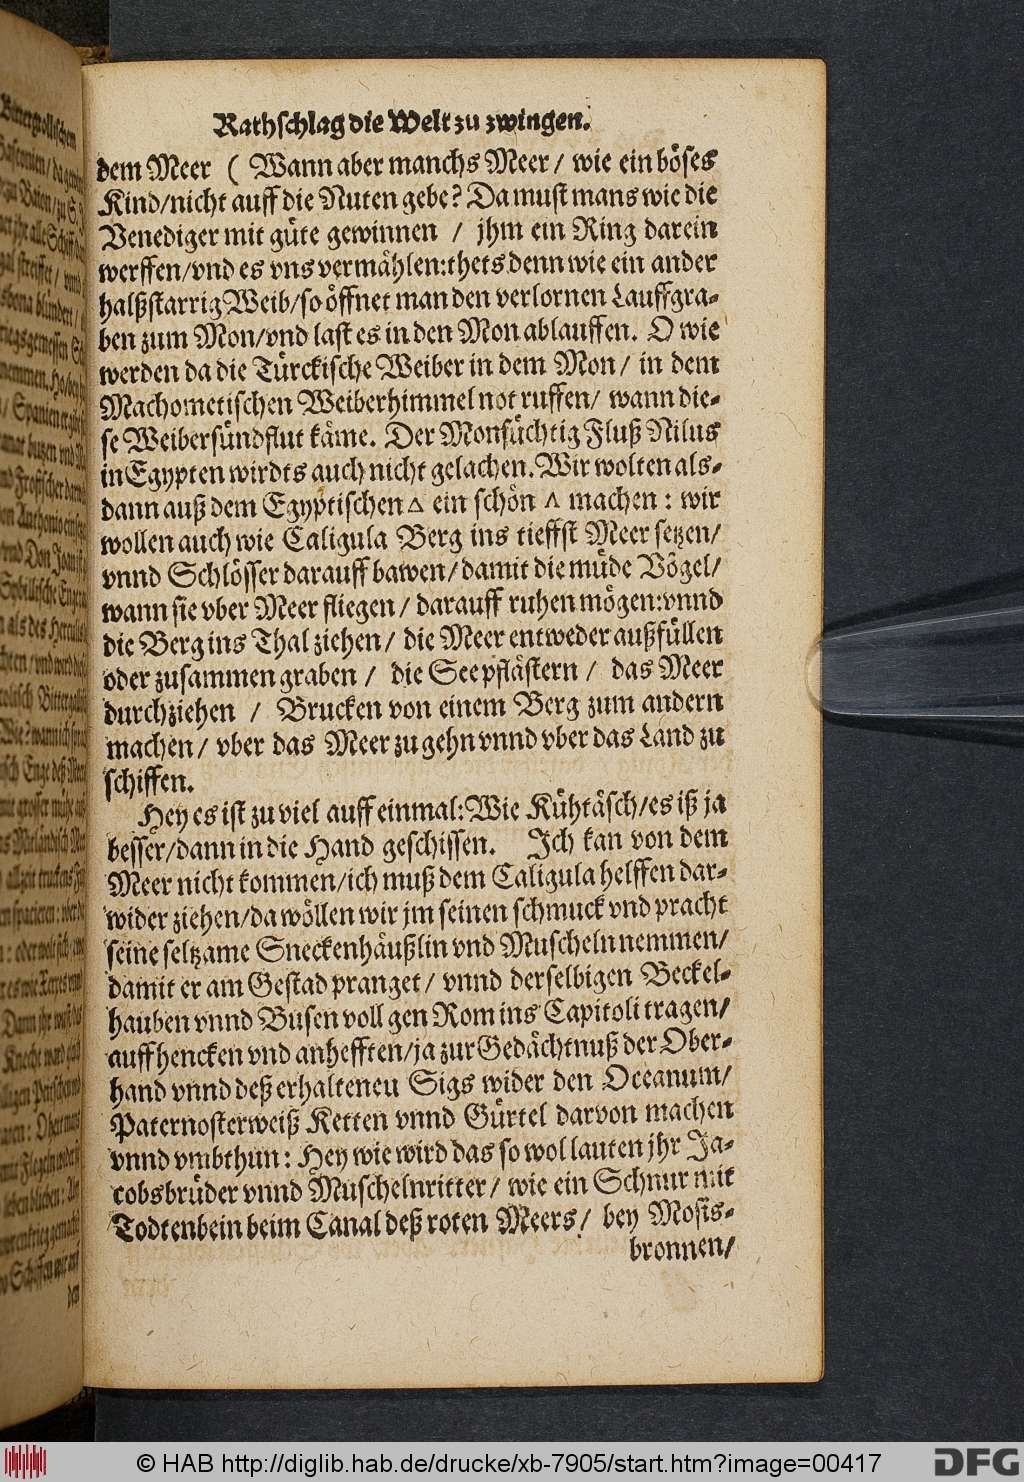 Rathschlag die Welt zu zwingen.
dem Meer ( Wann aber manchs Meer / wie ein böses
Kind/nicht auff die Nuten gebe? Da must mans wie die
Venediger mit güte gewinnen / jhm ein Ring darein
werffen/vnd es vns vermählen:thets denn wie ein ander
halßstarrig Weib/so öffnet man den verlornen Lauffgra-
ben zum Mon/vnd last es in den Mon ablauffen. O wie
werden da die Türckische Weiber in dem Mon / in dem
Machometischen Weiberhimmel not ruffen/ wann die-
se Weibersündflut käme. Der Monsüchtig Fluß Nilus
in Egypten wirdts auch nicht gelachen. Wir wolten als-
dann auß dem Egyptischen △ ein schön ^ machen : wir
wollen auch wie Caligula Berg ins tieffst Meer setzen/
vnnd Schlösser darauff bawen/damit die müde Vögel/
wann sie vber Meer fliegen / darauff ruhen mögen:vnnd
die Berg ins Thal ziehen / die Meer entweder außfüllen
oder zusammen graben / die See pflästern / das Meer
durchziehen / Brucken von einem Berg zum andern
machen / vber das Meer zu gehn vnnd vber das Land zu
schiffen.
Hey es ist zu viel auff einmal:Wie Kühtäsch/es iß ja
besser/dann in die Hand geschissen. Ich kan von dem
Meer nicht kommen/ich muß dem Caligula helffen dar-
wider ziehen/da wöllen wir jm seinen schmuck vnd pracht
seine seltzame Sneckenhäußlin vnd Muscheln nemmen/
damit er am Gestad pranget / vnnd derselbigen Beckel-
hauben vnnd Busen voll gen Rom ins Capitoli tragen/
auffhencken vnd anhefften/ja zur Gedächtnuß der Ober-
hand vnnd deß erhalteneu Sigs wider den Oceanum/
Paternosterweiß Ketten vnnd Gürtel darvon machen
vnnd vmbthun : Hey wie wird das so wol lauten jhr Ja-
cobsbrüder vnnd Muschelnritter / wie ein Schnur mit
Todtenbein beim Canal deß roten Meers / bey Mosis-
bronnen/
© HAB http://diglib.hab.de/drucke/xb-7905/start.htm?image=00417
DFG